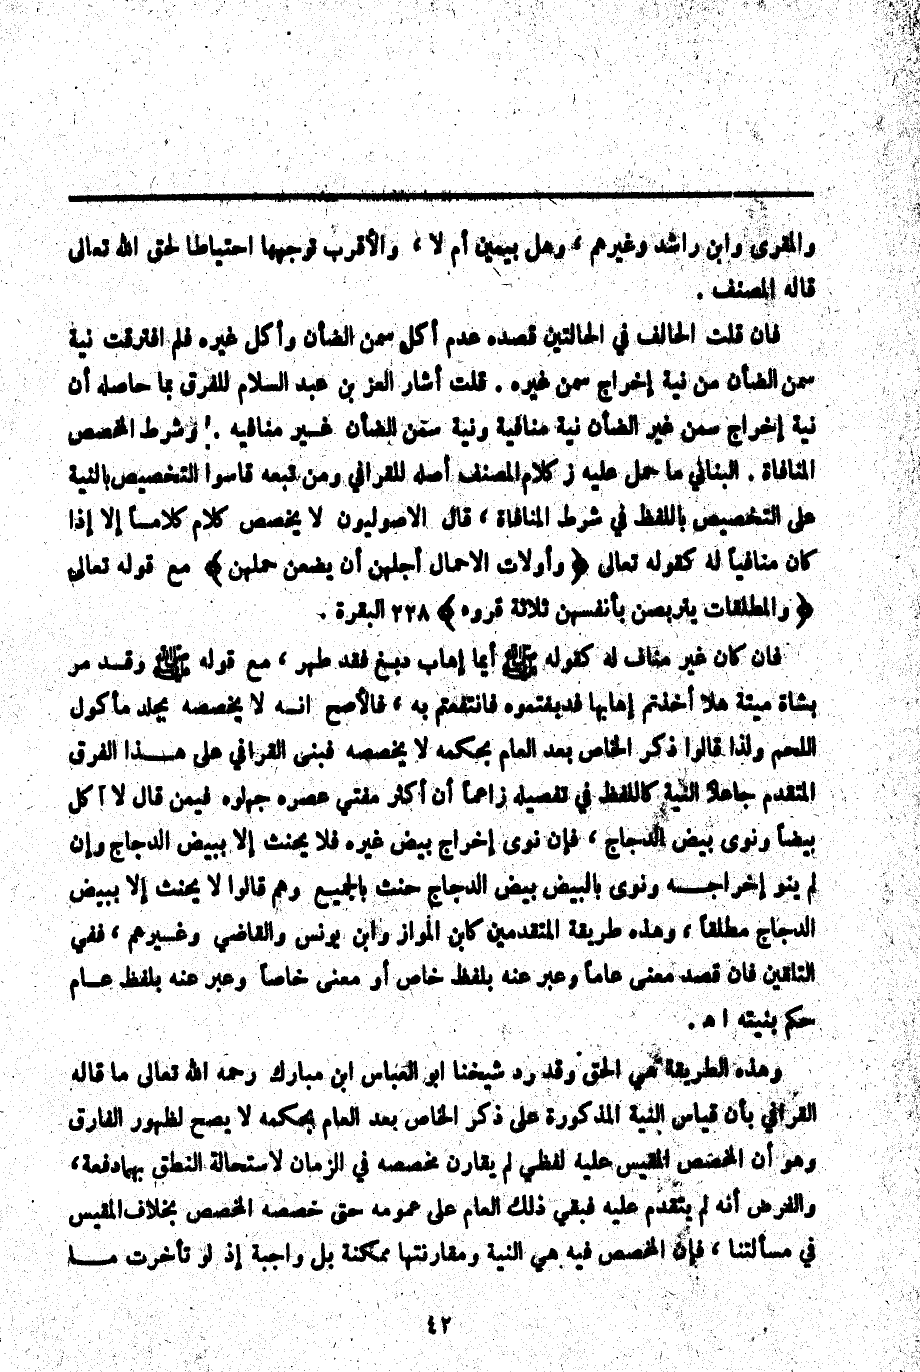 والمقرى وابن راشد وغيرهم ، وهل بيمين أم لا ، والأقرب توجهها احتياطا لحق الله تعالى
قاله المصنف .
فان قلت الحالف في الحالتين قصده عدم أكل سمن الضأن وأكل غيره فلم افترقت نية
سمن الضأن من نية إخراج سمن غيره . قلت أشار العز بن عبد السلام للفرق بما حاصله أن
نية إخراج سمن غير الضأن نية منافية ونية سمن الضأن غير منافيه . وشرط المخصص
المنافاة . البناني ما حمل عليه ز كلام المصنف أصله للقرافي ومن تبعه قاسوا التخصيص بالنية
على التخصيص باللفظ في شرط المنافاة ، قال الاصوليون لا يخصص كلام كلاماً إلا إذا
كان منافياً له كقوله تعالى ﴿ وأولات الاحمال أجلهن أن يضعن حملهن ﴾ مع قوله تعالى
﴿ والمطلقات يتربصن بأنفسهن ثلاثة قروء ﴾ ٢٢٨ البقرة .
فان كان غير مناف له كقوله ﷺ أيما إهاب دبغ فقد طهر ، مع قوله ﷺ وقد مر
بشاة ميتة هلا أخذتم إهابها فدبغتموه فانتفعتم به ، فالأصح انه لا يخصصه بجلد مأكول
اللحم ولذا قالوا ذكر الخاص بعد العام بحكمه لا يخصصه فبنى القرافي على هذا الفرق
المتقدم جاعلاً النية كاللفظ في تفصيله زاعماً أن أكثر مفتي عصره جهلوه فيمن قال لا آكل
بيضاً ونوى بيض الدجاج ، فإن نوى إخراج بيض غيره فلا يحنث إلا ببيض الدجاج وإن
لم ينو إخراجه ونوى بالبيض بيض الدجاج حنث بالجميع وهم قالوا لا يحنث إلا ببيض
الدجاج مطلقاً ، وهذه طريقة المتقدمين كابن المواز وابن يونس والقاضي وغيرهم ، ففي
التلقين فان قصد معنى عاماً وعبر عنه بلفظ خاص أو معنى خاصاً وعبر عنه بلفظ عام
حكم بنيته ا ه .
وهذه الطريقة هي الحق وقد رد شيخنا ابو العباس ابن مبارك رحمه الله تعالى ما قاله
القرافي بأن قياس النية المذكورة على ذكر الخاص بعد العام بحكمه لا يصح لظهور الفارق
وهو أن المخصص المقيس عليه لفظي لم يقارن مخصصه في الزمان لاستحالة النطق بهما دفعة ،
والفرض أنه لم يتقدم عليه فبقي ذلك العام على عمومه حتى خصصه المخصص بخلاف المقيس
في مسألتنا ، فإن المخصص فيه هي النية ومقارنتها ممكنة بل واجبة إذ لو تأخرت ما
٤٢